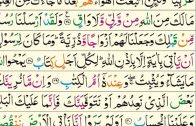 مِنَ اللَّهِ مِن وَلِيٍّ وَلَا وَاقٍ وَلَقَدْ أَرْسَلْنَا
مِّن قَبْلِكَ وَجَعَلْنَا لَهُمْ أَزْوَاجًا وَذُرِّيَّةً وَمَا كَانَ لِرَسُولٍ
أَن يَأْتِيَ بِآيَةٍ إِلَّا بِإِذْنِ اللَّهِ لِكُلِّ أَجَلٍ كِتَابٌ يَمْحُو اللَّهُ
مَا يَشَاءُ وَيُثْبِتُ وَعِندَهُ أُمُّ الْكِتَابِ وَإِن مَّا نُرِيَنَّكَ
بَعْضَ الَّذِي نَعِدُهُمْ أَوْ نَتَوَفَّيَنَّكَ فَإِنَّمَا عَلَيْكَ